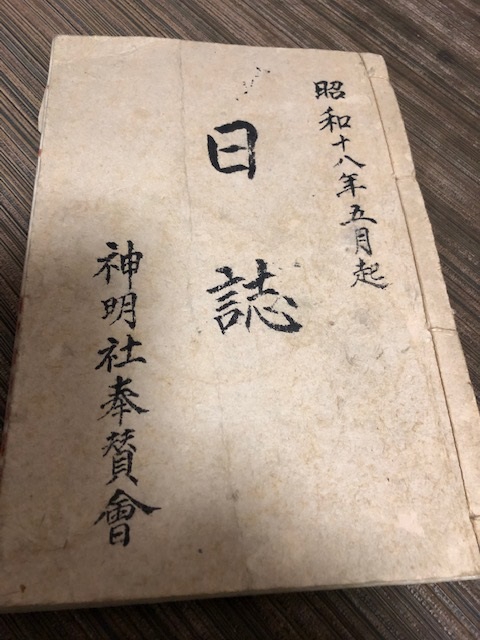 昭和十八年五月起
日誌
神明社奉賛會